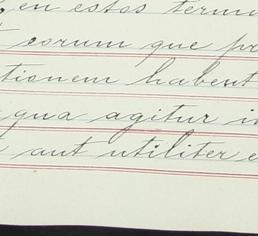 en estos termin
eorum que pr
tionem habent
qua agitur in
aut utiliter e